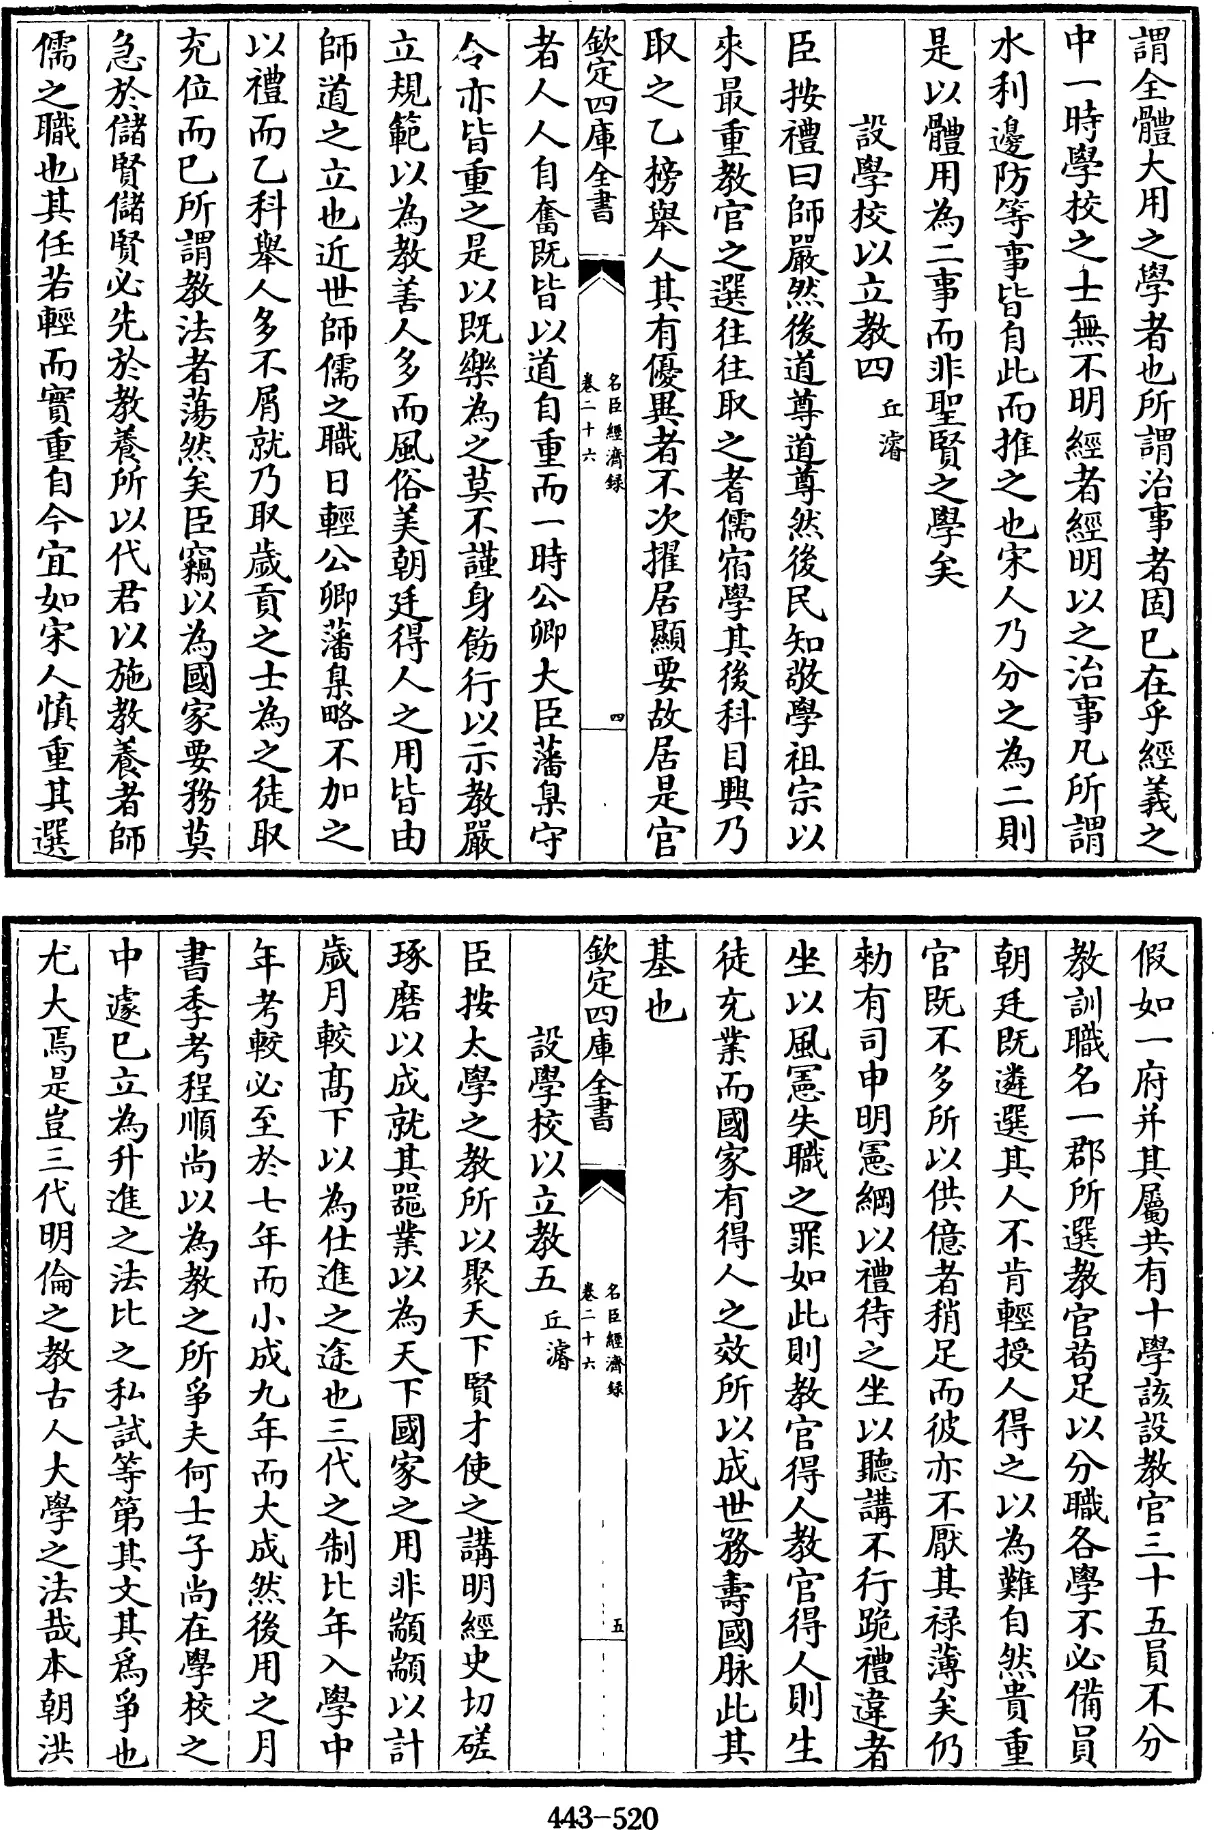 謂全體大用之學者也所謂治事者固已在乎經義之
中一時學校之士無不明經者經明以之治事凡所謂
水利邊防等事皆自此而推之也宋人乃分之為二則
是以體用為二事而非聖賢之學矣
設學校以立教四 丘濬
臣按禮曰師嚴然後道尊道尊然後民知敬學祖宗以
來最重教官之選往往取之耆儒宿學其後科目興乃
取之乙榜舉人其有優異者不次擢居顯要故居是官
欽定四庫全書 名臣經濟録 卷二十六 四
者人人自奮既皆以道自重而一時公卿大臣藩臬守
令亦皆重之是以既樂為之莫不謹身飭行以示教嚴
立規範以為教善人多而風俗美朝廷得人之用皆由
師道之立也近世師儒之職日輕公卿藩臬略不加之
以禮而乙科舉人多不屑就乃取歲貢之士為之徒取
充位而已所謂教法者蕩然矣臣竊以為國家要務莫
急於儲賢儲賢必先於教養所以代君以施教養者師
儒之職也其任若輕而實重自今宜如宋人慎重其選
假如一府并其屬共有十學該設教官三十五員不分
教訓職名一郡所選教官苟足以分職各學不必備員
朝廷既遴選其人不肯輕授人得之以為難自然貴重
官既不多所以供億者稍足而彼亦不厭其禄薄矣仍
勑有司申明憲綱以禮待之坐以聽講不行跪禮違者
坐以風憲失職之罪如此則教官得人教官得人則生
徒充業而國家有得人之效所以成世務壽國脉此其
基也
欽定四庫全書 名臣經濟録 卷二十六 五
設學校以立教五 丘濬
臣按太學之教所以聚天下賢才使之講明經史切磋
琢磨以成就其器業以為天下國家之用非顓顓以計
歲月較髙下以為仕進之途也三代之制比年入學中
年考較必至於七年而小成九年而大成然後用之月
書季考程頤尚以為教之所爭夫何士子尚在學校之
中遽已立為升進之法比之私試等第其文其爲爭也
尤大焉是豈三代明倫之教古人大學之法哉本朝洪
443-520